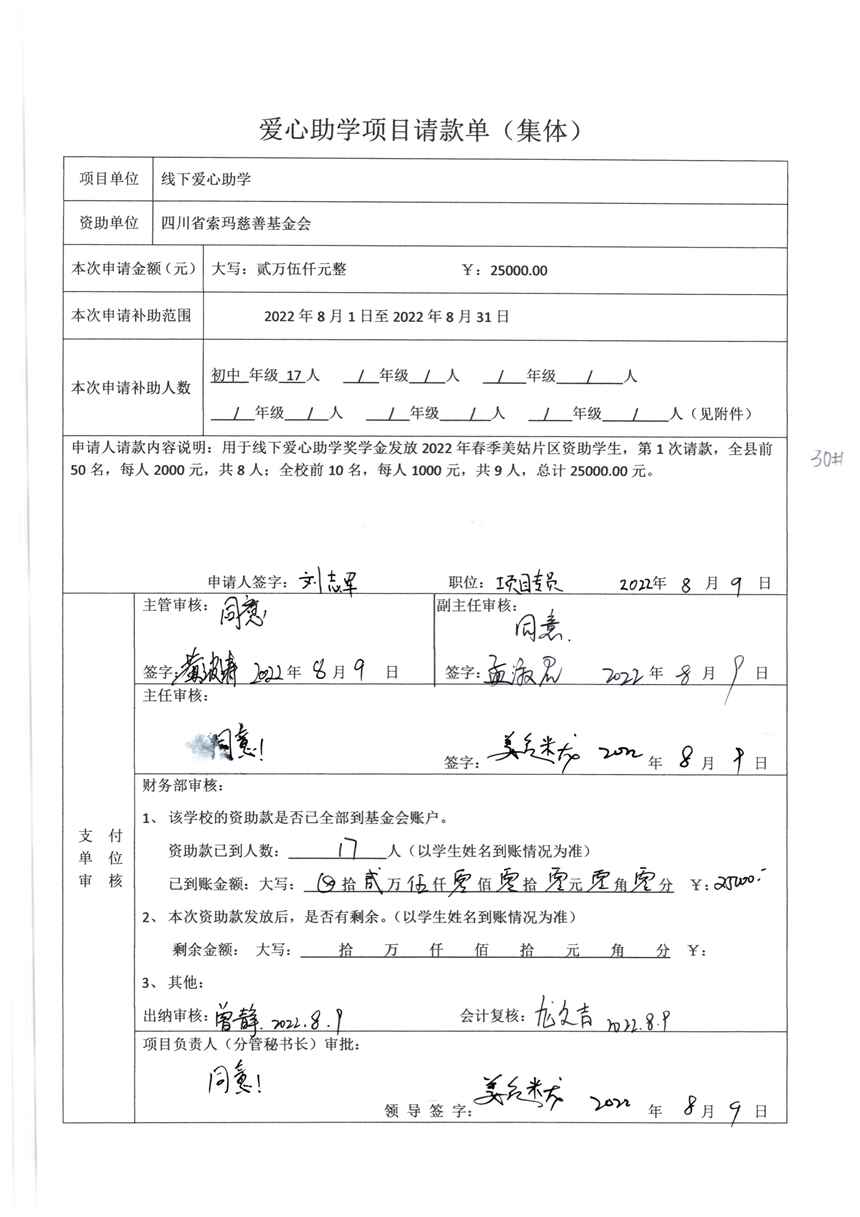 爱心助学项目请款单（集体）
项目单位 线下爱心助学
资助单位 四川省索玛慈善基金会
本次申请金额（元） 大写：贰万伍仟元整 ￥：25000.00
本次申请补助范围 2022年8月1日至2022年8月31日
初中 年级 17 人 / 年级 / 人 / 年级 / 人
本次申请补助人数
/ 年级 / 人 / 年级 / 人 / 年级 / 人（见附件）
申请人请款内容说明：用于线下爱心助学奖学金发放2022年春季美姑片区资助学生，第1次请款，全县前
50名，每人2000元，共8人；全校前10名，每人1000元，共9人，总计25000.00元。
30#
申请人签字：刘志军 职位：项目专员 2022年 8 月 9 日
主管审核：同意 副主任审核：同意.
签字： 2022年 8 月 9 日 签字：孟 2022年 8 月 9 日
主任审核：
同意！
签字： 2022 年 8 月 9 日
财务部审核：
1、 该学校的资助款是否已全部到基金会账户。
资助款已到人数： 17 人（以学生姓名到账情况为准）
已到账金额：大写： 拾 贰 万 伍 仟 零 佰 零 拾 零 元 零 角 零 分 ￥：25000.-
2、 本次资助款发放后，是否有剩余。（以学生姓名到账情况为准）
剩余金额： 大写： 拾 万 仟 佰 拾 元 角 分 ￥：
3、 其他：
支 付
单 位
审 核
出纳审核：曾静. 2022.8.9 会计复核： 2022.8.9
项目负责人（分管秘书长）审批：
同意！
领 导 签 字： 2022 年 8 月 9 日